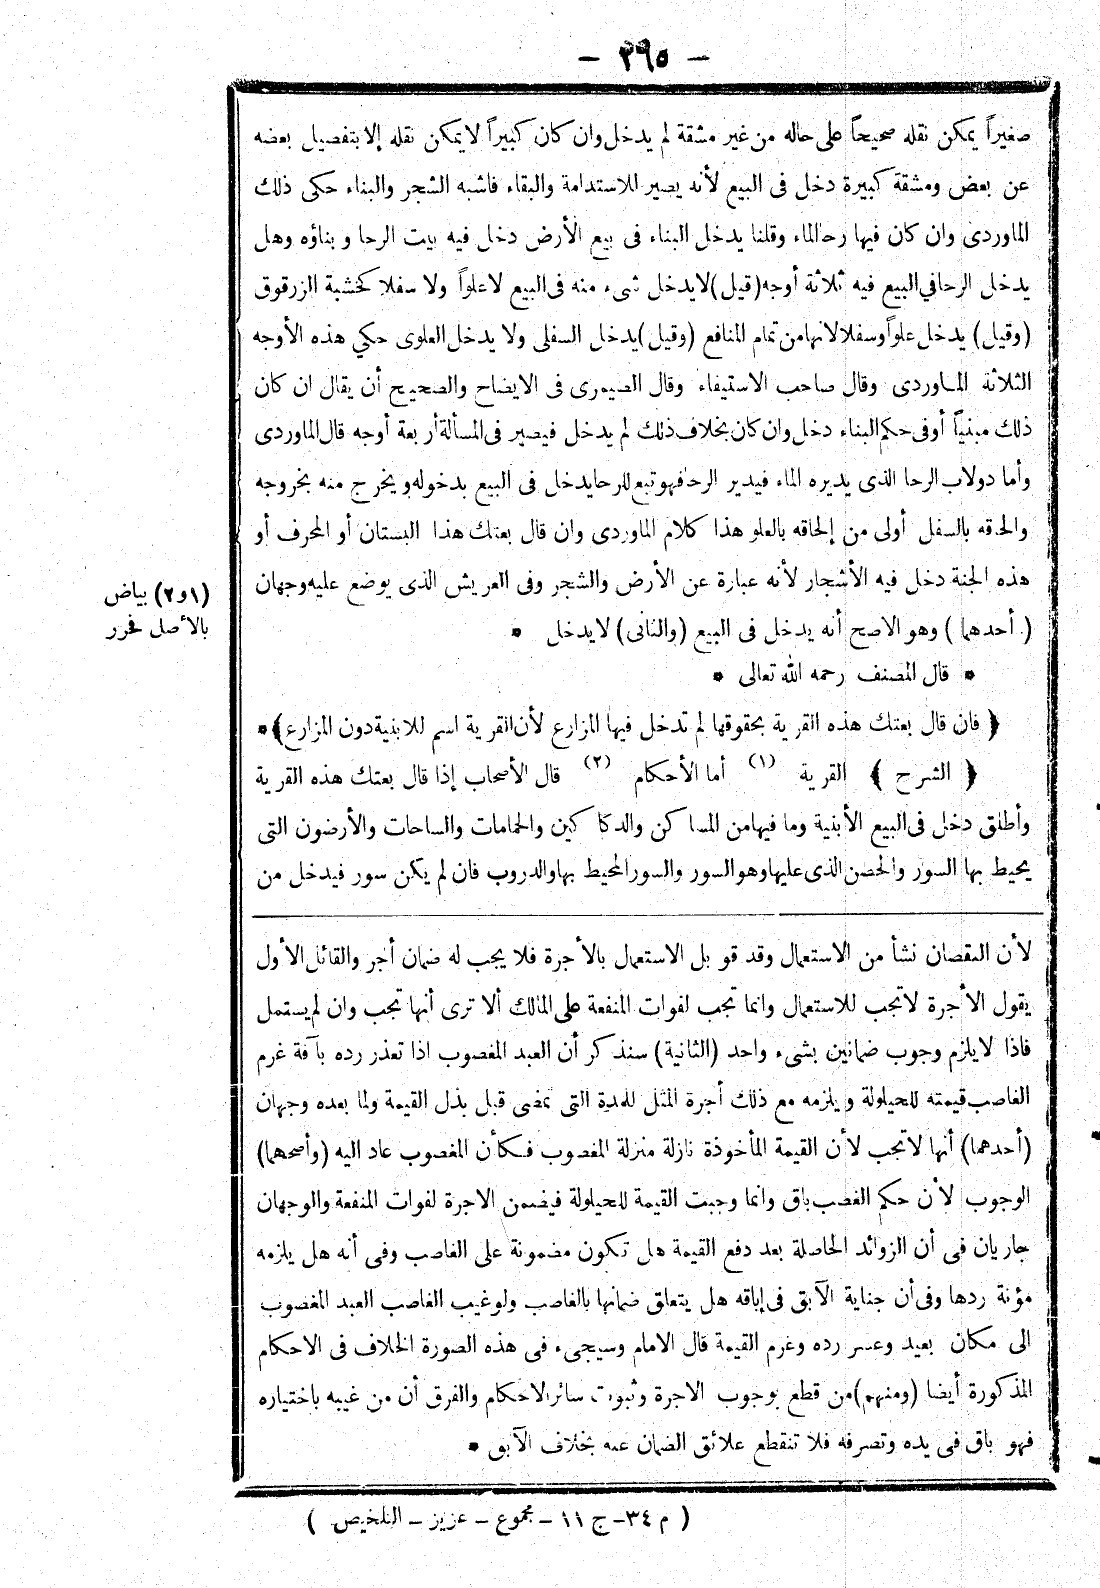 – ٢٦٥ –
صغيراً يمكن نقله صحيحاً على حاله من غير مشقة لم يدخل وان كان كبيراً لا يمكن نقله إلا بتفصيل بعضه
عن بعض ومشقة كبيرة دخل فى البيع لأنه يصير للاستدامة والبقاء فاشبه الشجر والبناء حكى ذلك
الماوردى وان كان فيها رحا الماء وقلنا يدخل البناء فى بيع الأرض دخل فيه بيت الرحا و بناؤه وهل
يدخل الرحا في البيع فيه ثلاثة أوجه (قيل) لا يدخل شىء منه فى البيع لا علواً ولا سفلا كخشبة الزرقوق
(وقيل) يدخل علواً وسفلا لانها من تمام المنافع (وقيل) يدخل السفلى ولا يدخل العلوى حكي هذه الأوجه
الثلاثة الماوردى وقال صاحب الاستيفاء وقال الصيمرى فى الايضاح والصحيح أن يقال ان كان
ذلك مبنياً أوفى حكم البناء دخل وان كان بخلاف ذلك لم يدخل فيصير فى المسألة أربعة أوجه قال الماوردى
وأما دولاب الرحا الذى يديره الماء فيدير الرحا فهو تبع للرحا يدخل فى البيع بدخوله و يخرج منه بخروجه
والحاقه بالسفل أولى من إلحاقه بالعلو هذا كلام الماوردى وان قال بعتك هذا البستان أو المحرف أو
هذه الجنة دخل فيه الأشجار لأنه عبارة عن الأرض والشجر وفى العريش الذى يوضع عليه وجهان
(أحدهما) وهو الاصح أنه يدخل فى البيع (والثانى) لا يدخل *
* قال المصنف رحمه الله تعالى *
﴿ فان قال بعتك هذه القرية بحقوقها لم تدخل فيها المزارع لأن القرية اسم للابنية دون المزارع ﴾ *
﴿ الشرح ﴾ القرية (١) أما الأحكام (٢) قال الأصحاب إذا قال بعتك هذه القرية
وأطلق دخل فى البيع الأبنية وما فيها من المساكن والدكاكين والحمامات والساحات والأرضون التى
يحيط بها السور والحصن الذى عليها وهو السور والسور المحيط بها والدروب فان لم يكن سور فيدخل من
(١و٢) بياض
بالأصل فحرر
لأن النقصان نشأ من الاستعمال وقد قو بل الاستعمال بالأجرة فلا يجب له ضمان أخر والقائل الأول
يقول الأجرة لا تجب للاستعمال وانما تجب لفوات المنفعة على المالك ألا ترى أنها تجب وان لم يستعمل
فاذا لا يلزم وجوب ضمانين بشىء واحد (الثانية) سنذكر أن العبد المغصوب اذا تعذر رده بآفة غرم
الغاصب قيمته للحيلولة و يلزمه مع ذلك أجرة المثل للمدة التى تمضى قبل بذل القيمة ولما بعده وجهان
(أحدهما) أنها لا تجب لأن القيمة المأخوذة نازلة منزلة المغصوب فكأن المغصوب عاد اليه (وأصحهما)
الوجوب لأن حكم الغصب باق وانما وجبت القيمة للحيلولة فيضمن الاجرة لفوات المنفعة والوجهان
جاريان فى أن الزوائد الحاصلة بعد دفع القيمة هل تكون مضمونة على الغاصب وفى أنه هل يلزمه
مؤنة ردها وفى أن جناية الآبق فى إباقه هل يتعلق ضمانها بالغاصب ولو غيب الغاصب العبد المغصوب
الى مكان بعيد وعسر رده وغرم القيمة قال الامام وسيجىء فى هذه الصورة الخلاف فى الاحكام
المذكورة أيضا (ومنهم) من قطع بوجوب الاجرة وثبوت سائر الاحكام والفرق أن من غيبه باختياره
فهو باق فى يده وتصرفه فلا تنقطع علائق الضمان عنه بخلاف الآبق *
( م ٣٤ – ج ١١ – مجموع – عزيز – التلخيص )